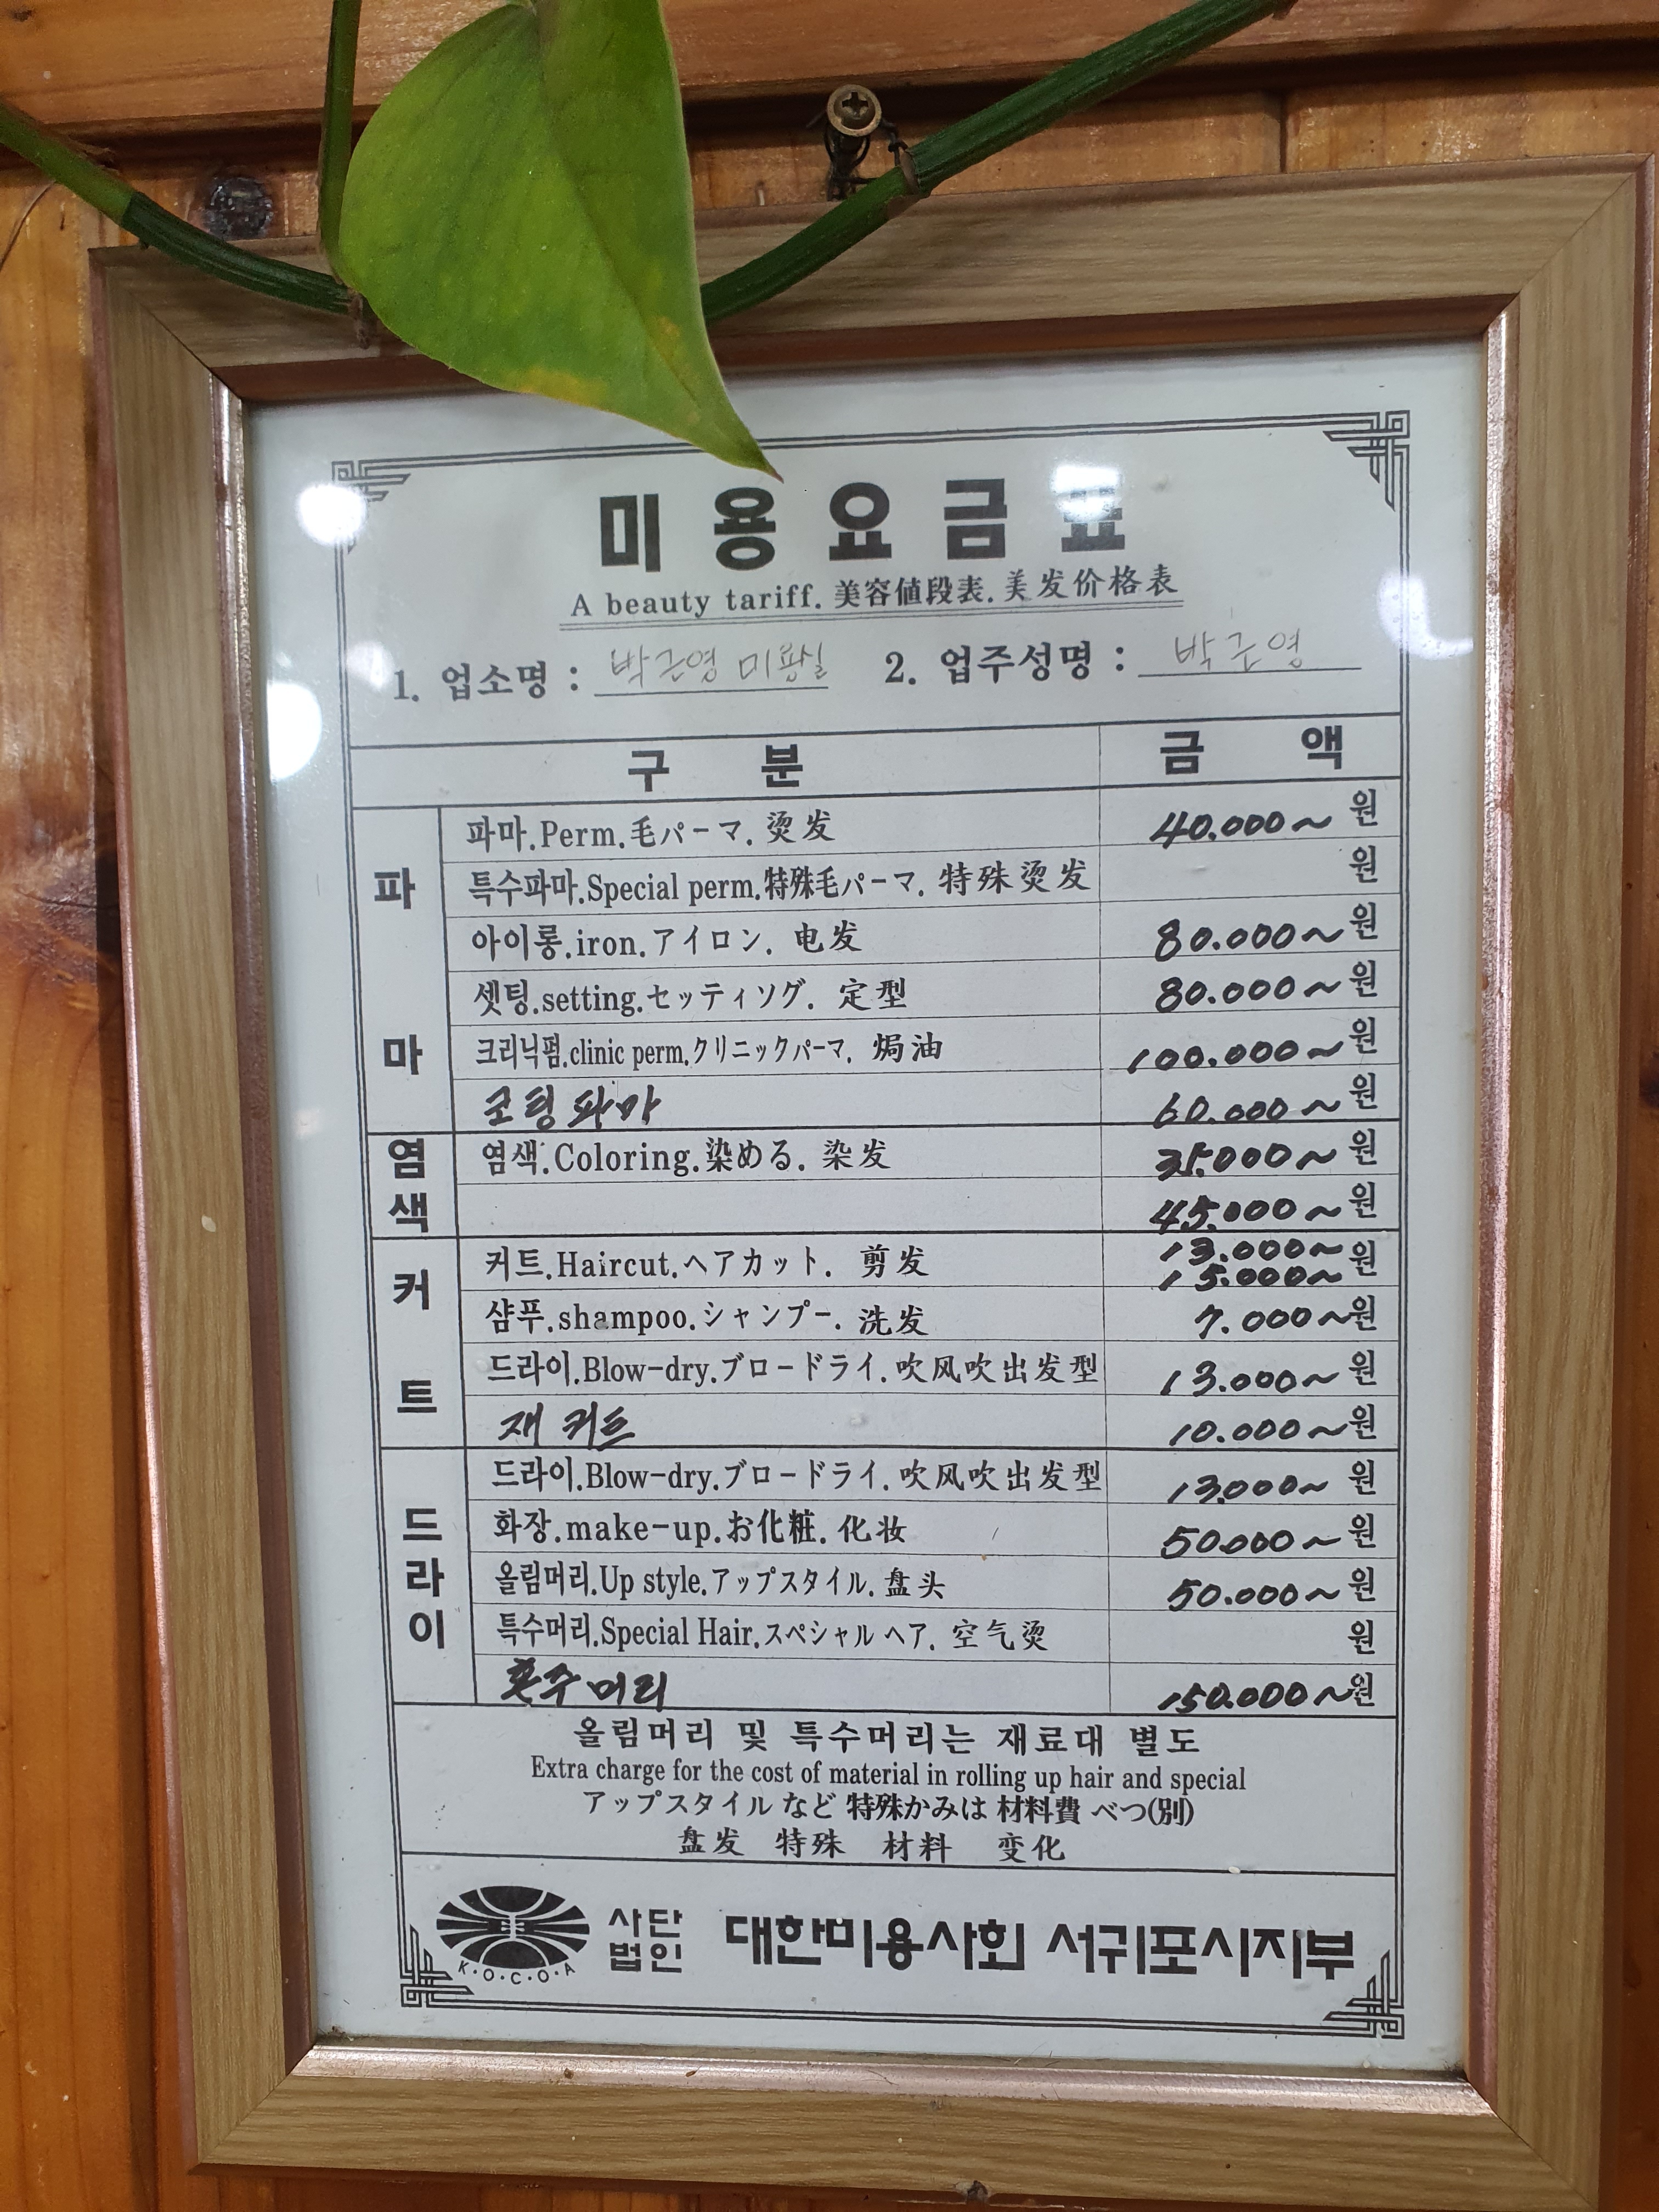 미용요금표
A beauty tariff. 美容値段表. 美发价格表
1. 업소명 : 박근영 미용실 2. 업주성명 : 박근영
구 분 금 액
파마
파마.Perm.毛パーマ. 烫发 40.000~ 원
특수파마.Special perm.特殊毛パーマ. 特殊烫发 원
아이롱.iron.アイロン. 电发 80.000~ 원
셋팅.setting.セッティソグ. 定型 80.000~ 원
크리닉펌.clinic perm.クリニックパーマ. 焗油 100.000~ 원
코팅파마 60.000~ 원
염색
염색.Coloring.染める. 染发 35.000~ 원
45.000~ 원
커트
커트.Haircut.ヘアカット. 剪发 13.000~ 15.000~ 원
샴푸.shampoo.シャンプー. 洗发 7.000~ 원
드라이.Blow-dry.ブロードライ. 吹风吹出发型 13.000~ 원
재 커트 10.000~ 원
드라이
드라이.Blow-dry.ブロードライ. 吹风吹出发型 13.000~ 원
화장.make-up.お化粧. 化妆 50.000~ 원
올림머리.Up style.アップスタイル. 盘头 50.000~ 원
특수머리.Special Hair.スペシャル ヘア. 空气烫 원
혼주머리 150.000~ 원
올림머리 및 특수머리는 재료대 별도
Extra charge for the cost of material in rolling up hair and special
アップスタイル など 特殊かみは 材料費 べつ(別)
盘发 特殊 材料 变化
K·O·C·O·A
사단법인 대한미용사회 서귀포시지부